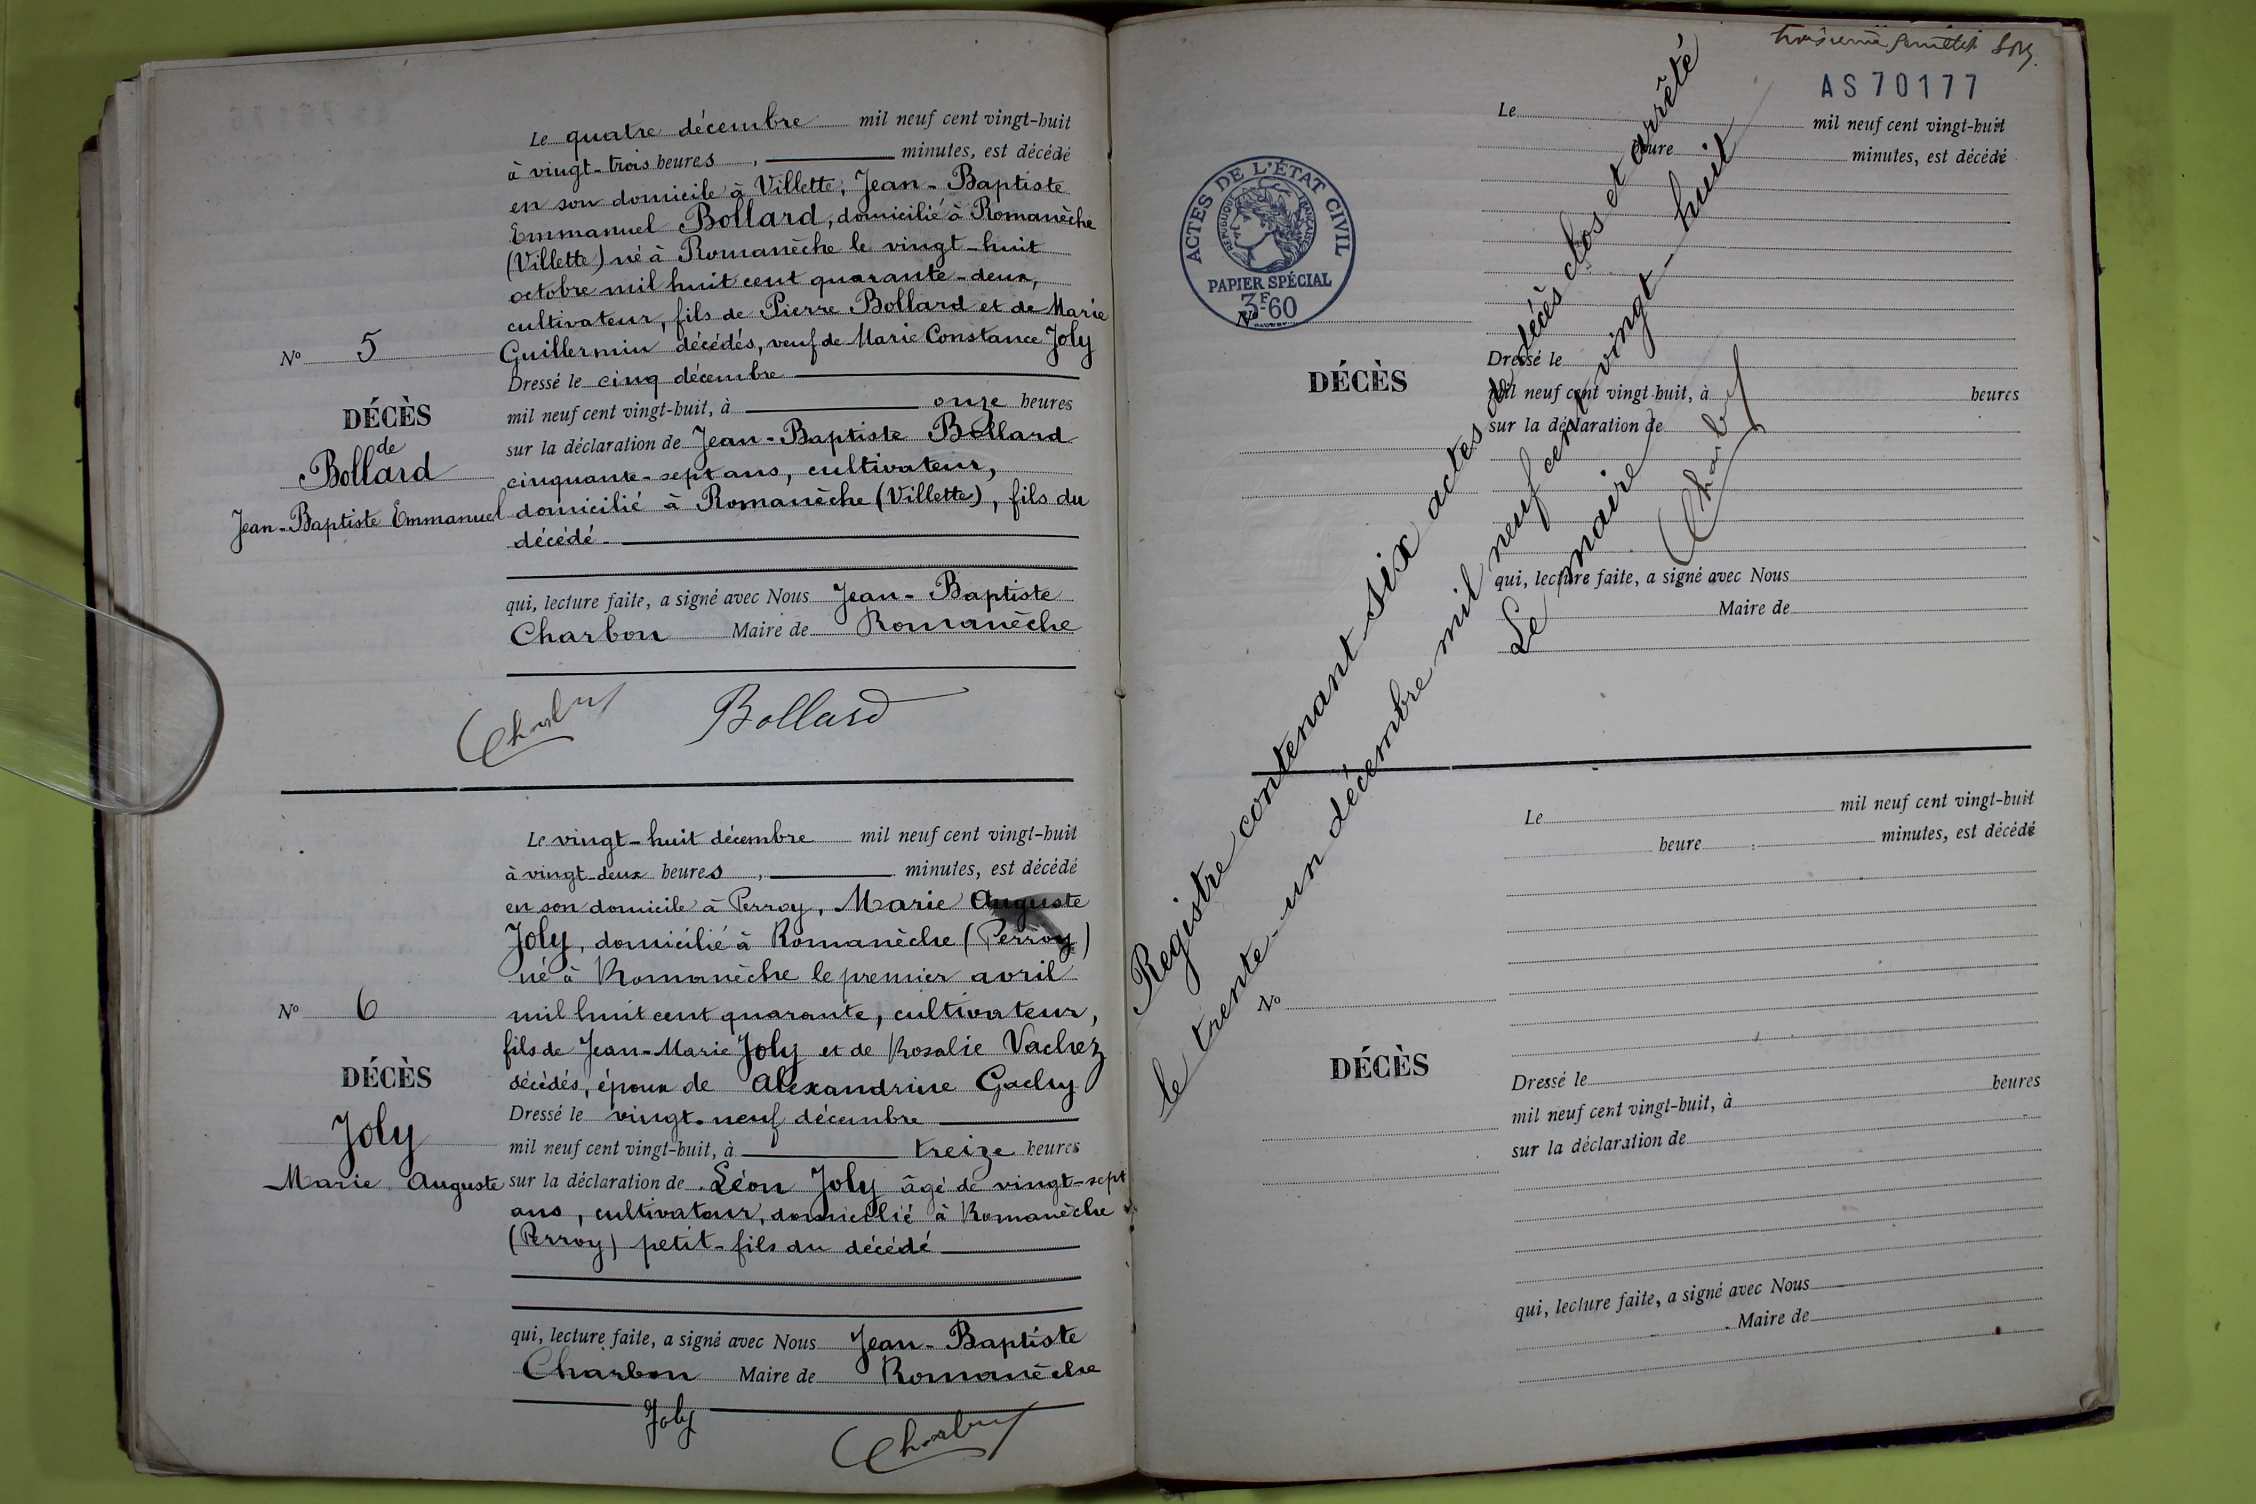 Le quatre décembre mil neuf cent vingt-huit
à vingt-trois heures, minutes, est décédé
en son domicile à Villette, Jean-Baptiste
Emmanuel Bollard, domicilié à Romanèche
(Villette) né à Romanèche le vingt-huit
octobre mil huit cent quarante-deux,
cultivateur, fils de Pierre Bollard et de Marie
Guillermin décédés, veuf de Marie Constance Joly
Dressé le cinq décembre
mil neuf cent vingt-huit, à onze heures
sur la déclaration de Jean-Baptiste Bollard
cinquante-sept ans, cultivateur,
domicilié à Romanèche (Villette), fils du
décédé.
qui, lecture faite, a signé avec Nous Jean-Baptiste
Charbon Maire de Romanèche
N° 5
DÉCÈS
de
Bollard
Jean-Baptiste Emmanuel
Charbon Bollard
Le vingt-huit décembre mil neuf cent vingt-huit
à vingt-deux heures, minutes, est décédé
en son domicile à Perroy, Marie Auguste
Joly, domicilié à Romanèche (Perroy)
né à Romanèche le premier avril
mil huit cent quarante, cultivateur,
fils de Jean-Marie Joly et de Rosalie Vachez
décédés, époux de Alexandrine Gachy
Dressé le vingt-neuf décembre
mil neuf cent vingt-huit, à treize heures
sur la déclaration de Léon Joly âgé de vingt-sept
ans, cultivateur, domicilié à Romanèche
(Perroy) petit-fils du décédé
qui, lecture faite, a signé avec Nous Jean-Baptiste
Charbon Maire de Romanèche
N° 6
DÉCÈS
Joly
Marie Auguste
Joly
Charbon
troisième feuillet
AS 70177
ACTES DE L'ÉTAT CIVIL
RÉPUBLIQUE FRANÇAISE
PAPIER SPÉCIAL
3F60
Le mil neuf cent vingt-huit
heure minutes, est décédé
N°
DÉCÈS
Dressé le
mil neuf cent vingt-huit, à heures
sur la déclaration de
qui, lecture faite, a signé avec Nous
Maire de
Registre contenant six actes de décès clos et arrêté
le trente-un décembre mil neuf cent vingt-huit
Le maire
Charbon
Le mil neuf cent vingt-huit
heure minutes, est décédé
N°
DÉCÈS
Dressé le
mil neuf cent vingt-huit, à heures
sur la déclaration de
qui, lecture faite, a signé avec Nous
Maire de